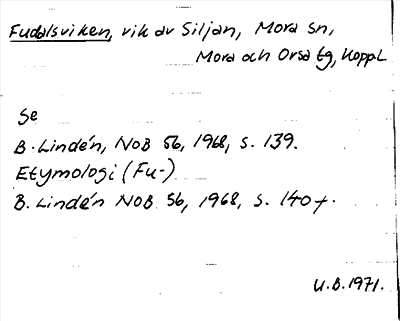 Fudalsviken, vik av Siljan, Mora sn,
Mora och Orsa tg, Koppl.
Se
B. Lindén, NoB 56, 1968, s. 139.
Etymologi (Fu-)
B. Lindén NoB 56, 1968, s. 140 f.
U.B. 1971.